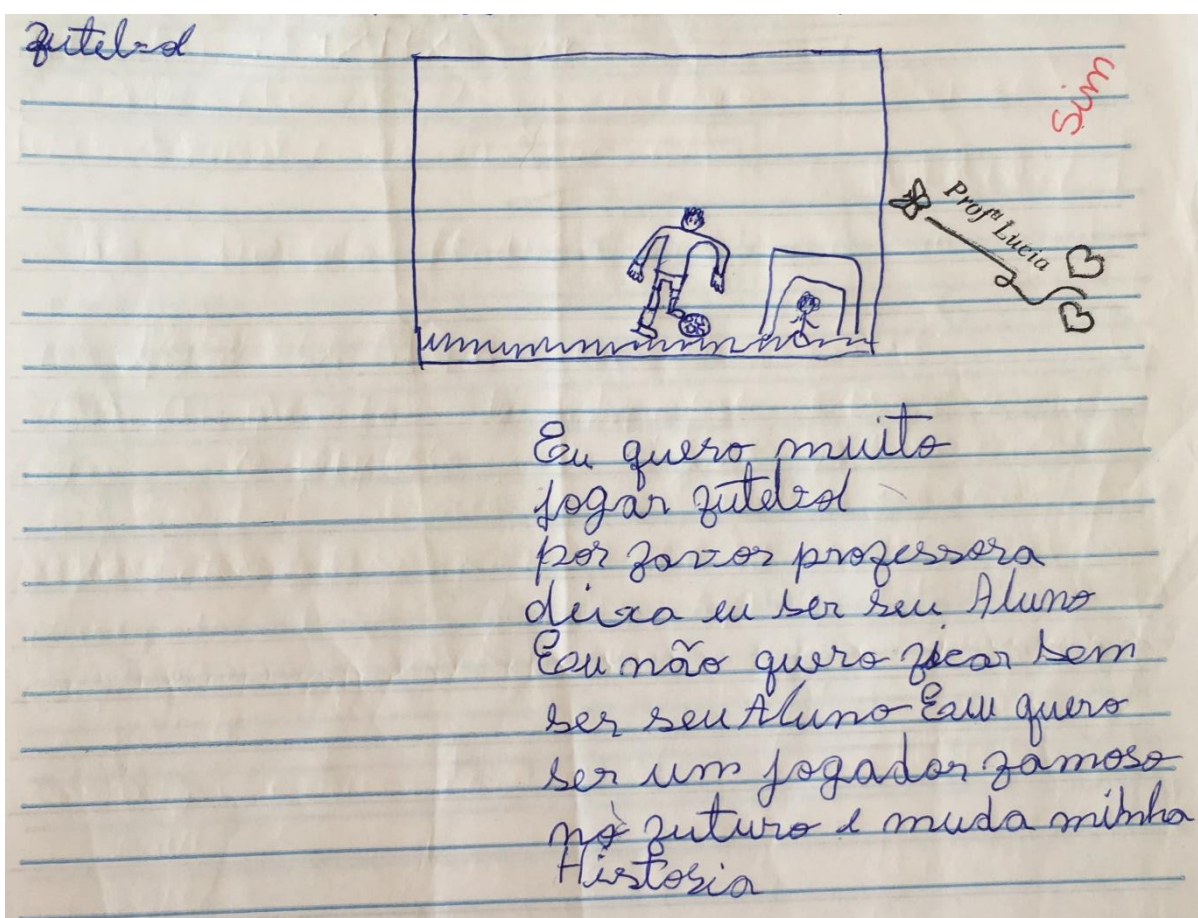 futebol
Sim
Profª Lucia
Eu quero muito
jogar futebol
por favor professora
deixa eu ser seu Aluno
Eeu não quero ficar sem
ser seu Aluno Eeu quero
ser um jogador famoso
no futuro e muda minha
Historia